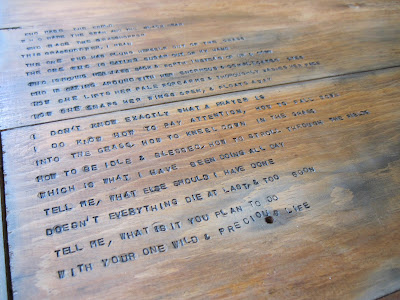 WHO MADE THE WORLD
WHO MADE THE
WHO MADE THE
THIS GRASSHOPPER, I MEAN
THE ONE WHO HAS FLUNG HERSELF OUT OF THE GRASS
THE ONE WHO IS EATING SUGAR OUT OF MY HAND
WHO IS MOVING HER JAWS BACK & FORTH INSTEAD OF UP & DOWN
WHO IS GAZING AROUND WITH HER ENORMOUS & COMPLICATED EYES
NOW SHE LIFTS HER PALE FOREARMS & THOROUGHLY WASHES HER FACE
NOW SHE SNAPS HER WINGS OPEN, & FLOATS AWAY
I DON'T KNOW EXACTLY WHAT A PRAYER IS
I DO KNOW HOW TO PAY ATTENTION, HOW TO FALL DOWN,
INTO THE GRASS, HOW TO KNEEL DOWN, IN THE GRASS
HOW TO BE IDLE & BLESSED, HOW TO STROLL THROUGH THE FIELDS
WHICH IS WHAT I HAVE BEEN DOING ALL DAY
TELL ME, WHAT ELSE SHOULD I HAVE DONE
DOESN'T EVERYTHING DIE AT LAST, & TOO SOON
TELL ME, WHAT IS IT YOU PLAN TO DO
WITH YOUR ONE WILD & PRECIOUS LIFE